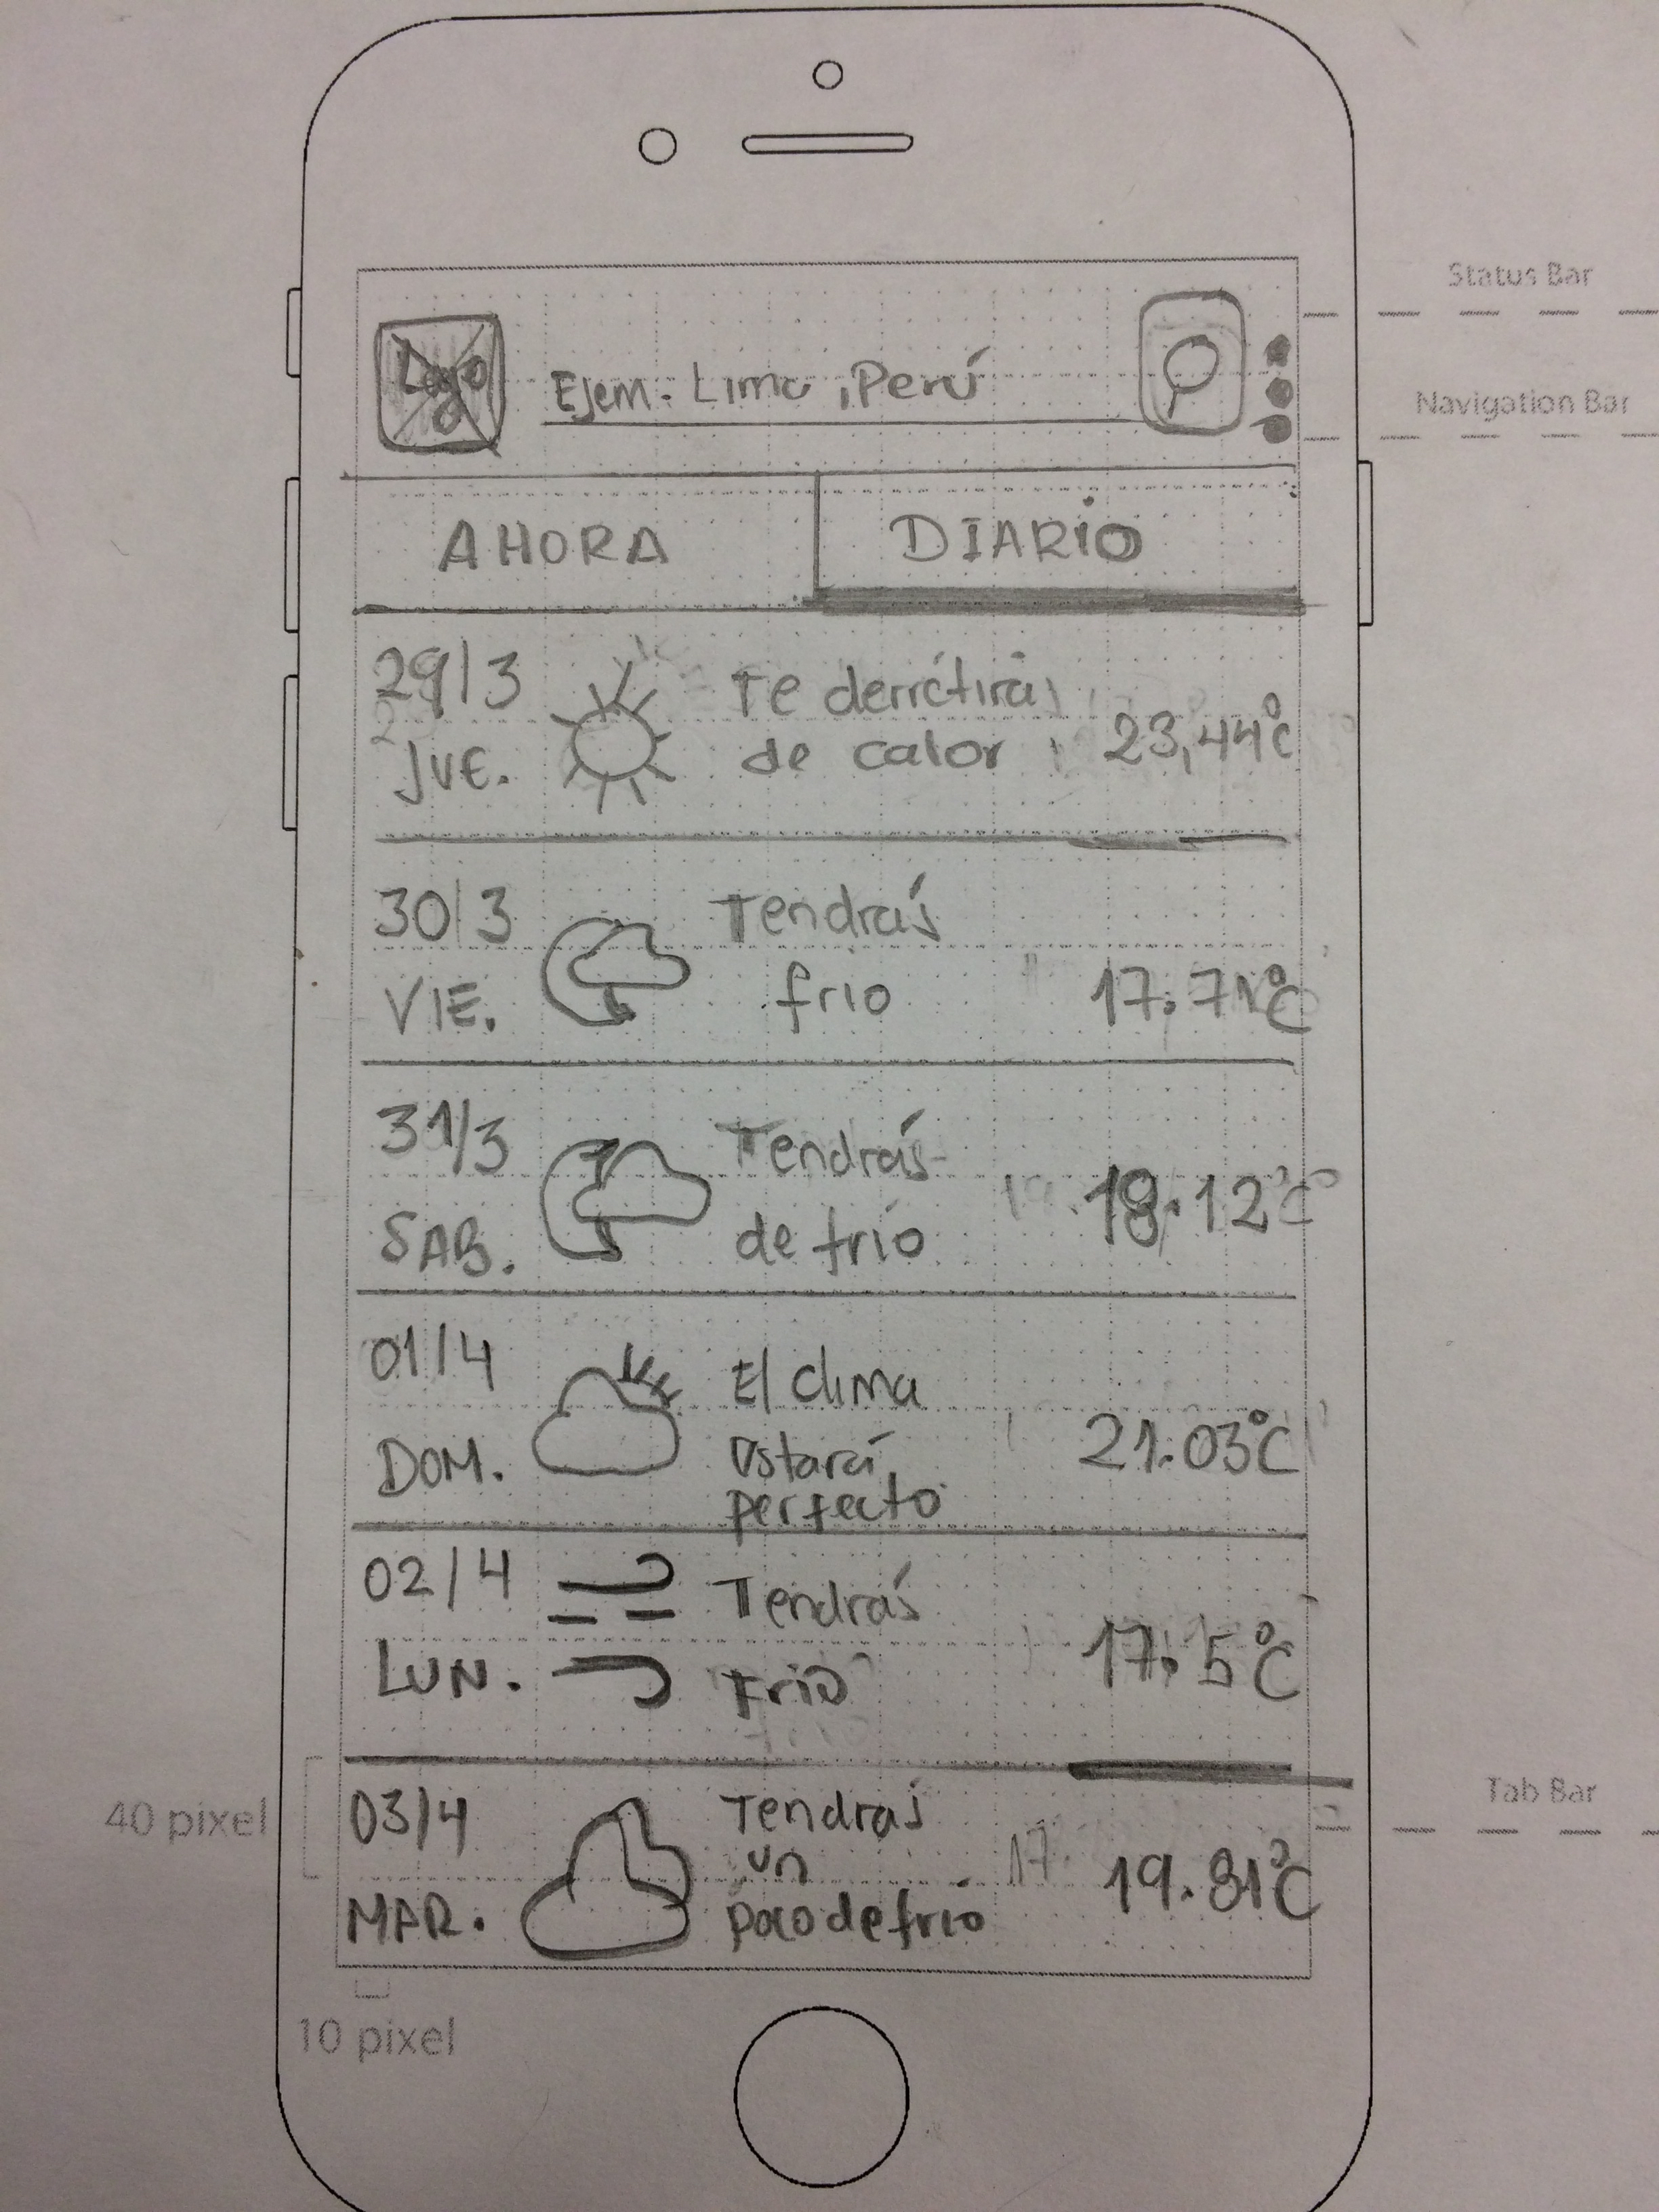 Status Bar
Logo
Ejem. Lima, Perú
Navigation Bar
AHORA
DIARIO
29/3
JUE.
Te derretirás
de calor
23,44°C
30/3
VIE.
Tendrás
frio
17.71°C
31/3
SAB.
Tendrás
de frío
18.12°C
01/4
DOM.
El clima
estará
perfecto
21.03°C
02/4
LUN.
Tendrás
Frio
17.5°C
Tab Bar
40 pixel
03/4
MAR.
Tendrás
un
poco de frío
19.81°C
10 pixel